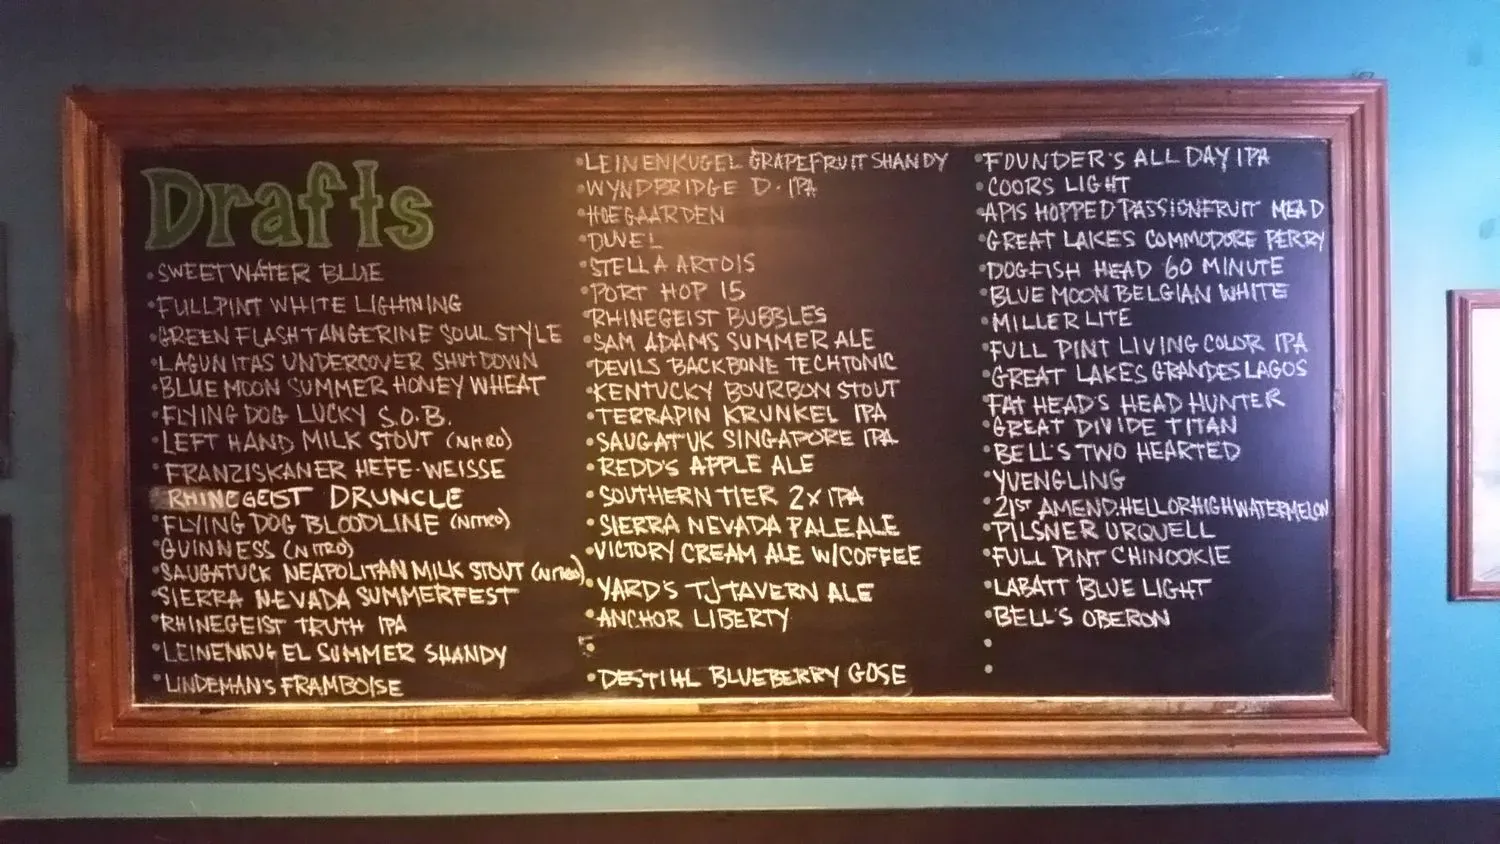 Drafts
• SWEETWATER BLUE
• FULLPINT WHITE LIGHTNING
• GREEN FLASH TANGERINE SOUL STYLE
• LAGUNITAS UNDERCOVER SHUTDOWN
• BLUE MOON SUMMER HONEY WHEAT
• FLYING DOG LUCKY S.O.B.
• LEFT HAND MILK STOUT (NITRO)
• FRANZISKANER HEFE-WEISSE
• RHINEGEIST DRUNCLE
• FLYING DOG BLOODLINE (NITRO)
• GUINNESS (NITRO)
• SAUGATUCK NEAPOLITAN MILK STOUT (NITRO)
• SIERRA NEVADA SUMMERFEST
• RHINEGEIST TRUTH IPA
• LEINENKUGEL SUMMER SHANDY
• LINDEMAN'S FRAMBOISE
• LEINENKUGEL GRAPEFRUIT SHANDY
• WYNDBRIDGE D. IPA
• HOEGAARDEN
• DUVEL
• STELLA ARTOIS
• PORT HOP 15
• RHINEGEIST BUBBLES
• SAM ADAMS SUMMER ALE
• DEVILS BACKBONE TECHTONIC
• KENTUCKY BOURBON STOUT
• TERRAPIN KRUNKEL IPA
• SAUGATUK SINGAPORE IPA
• REDD'S APPLE ALE
• SOUTHERN TIER 2X IPA
• SIERRA NEVADA PALE ALE
• VICTORY CREAM ALE W/COFFEE
• YARD'S TJ TAVERN ALE
• ANCHOR LIBERTY
•
• DESTIHL BLUEBERRY GOSE
• FOUNDER'S ALL DAY IPA
• COORS LIGHT
• APIS HOPPED PASSIONFRUIT MEAD
• GREAT LAKES COMMODORE PERRY
• DOGFISH HEAD 60 MINUTE
• BLUE MOON BELGIAN WHITE
• MILLER LITE
• FULL PINT LIVING COLOR IPA
• GREAT LAKES GRANDES LAGOS
• FAT HEAD'S HEAD HUNTER
• GREAT DIVIDE TITAN
• BELL'S TWO HEARTED
• YUENGLING
• 21ST AMEND. HELLORHIGHWATERMELON
• PILSNER URQUELL
• FULL PINT CHINOOKIE
• LABATT BLUE LIGHT
• BELL'S OBERON
•
•